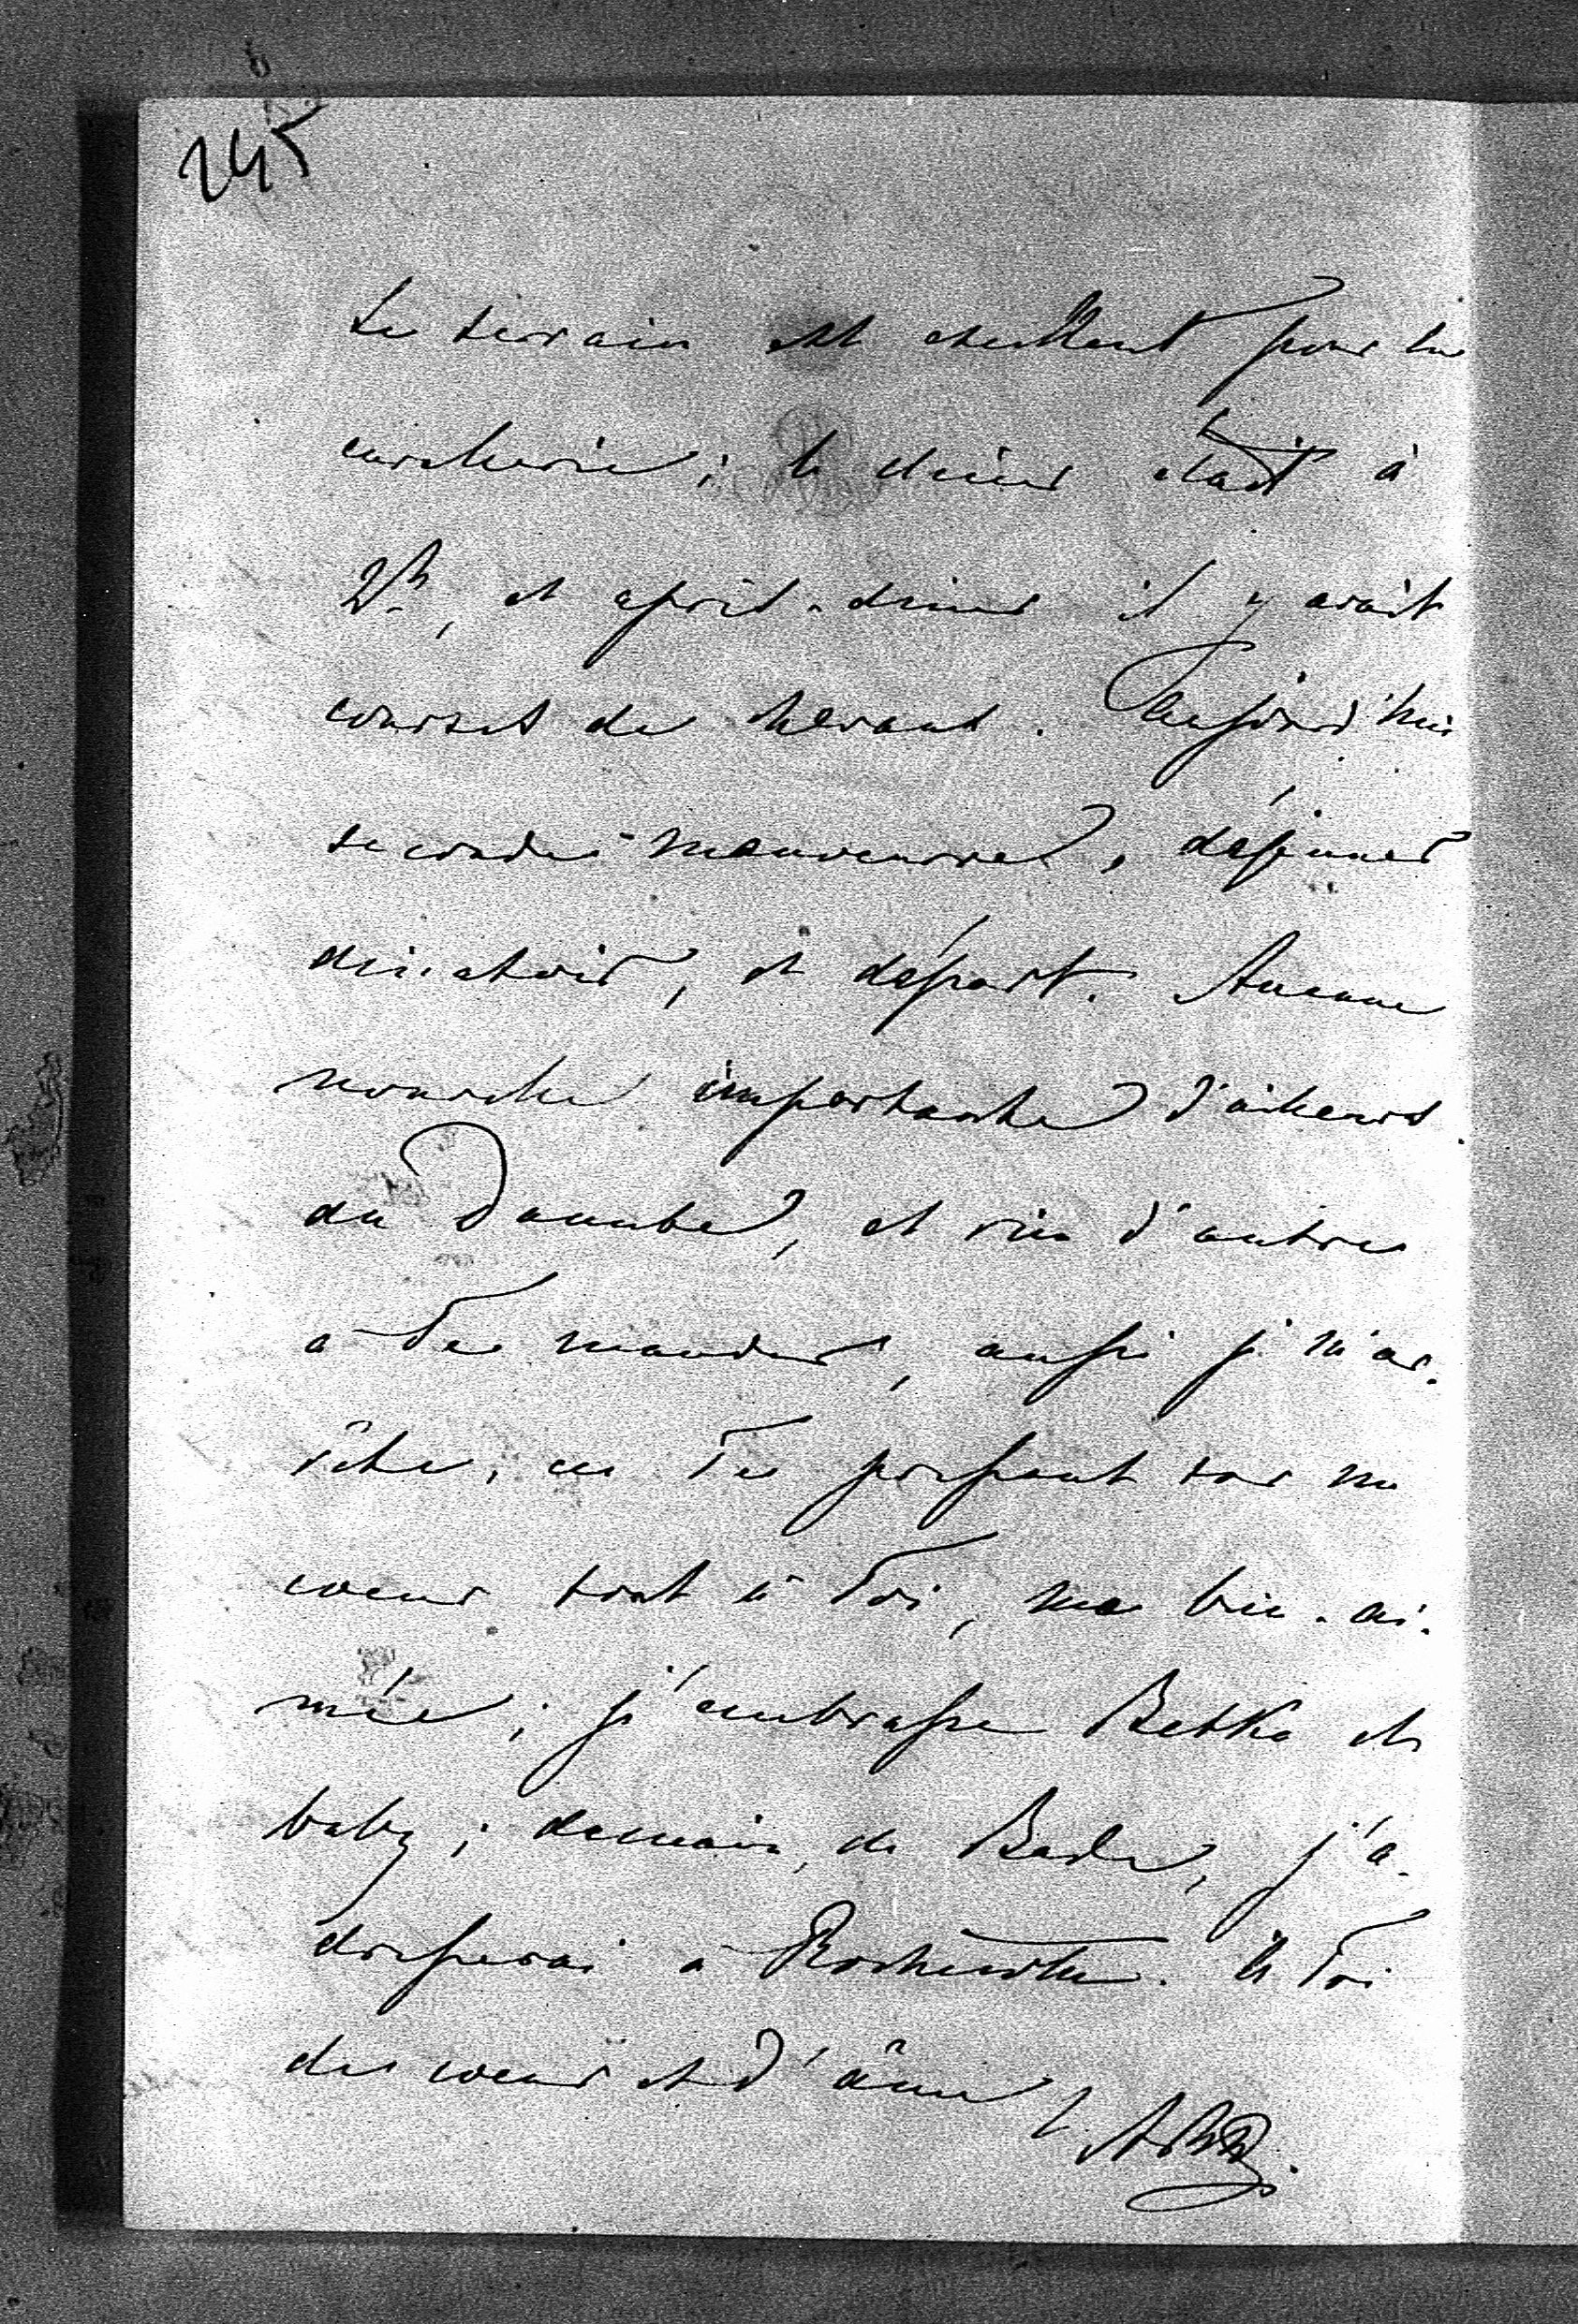 245
Le terrain est excellent pour la
cavalerie; le diner était à
2h, et après-diner il y avait
courses de chevaux. Aujourd'hui
secondes manoeuvres, déjeuner
dinatoire, et départ. Aucune
nouvelle importante d'ailleurs
du Danube, et rien d'autre
à Te mander, aussi je m'ar-
rête, en Te pressant sur mon
coeur tout à Toi, ma bien-ai-
mée; j'embrasse Betka et
baby; demain, de Bade, j'a-
dresserai à
À Toi
de coeur et d'âme!